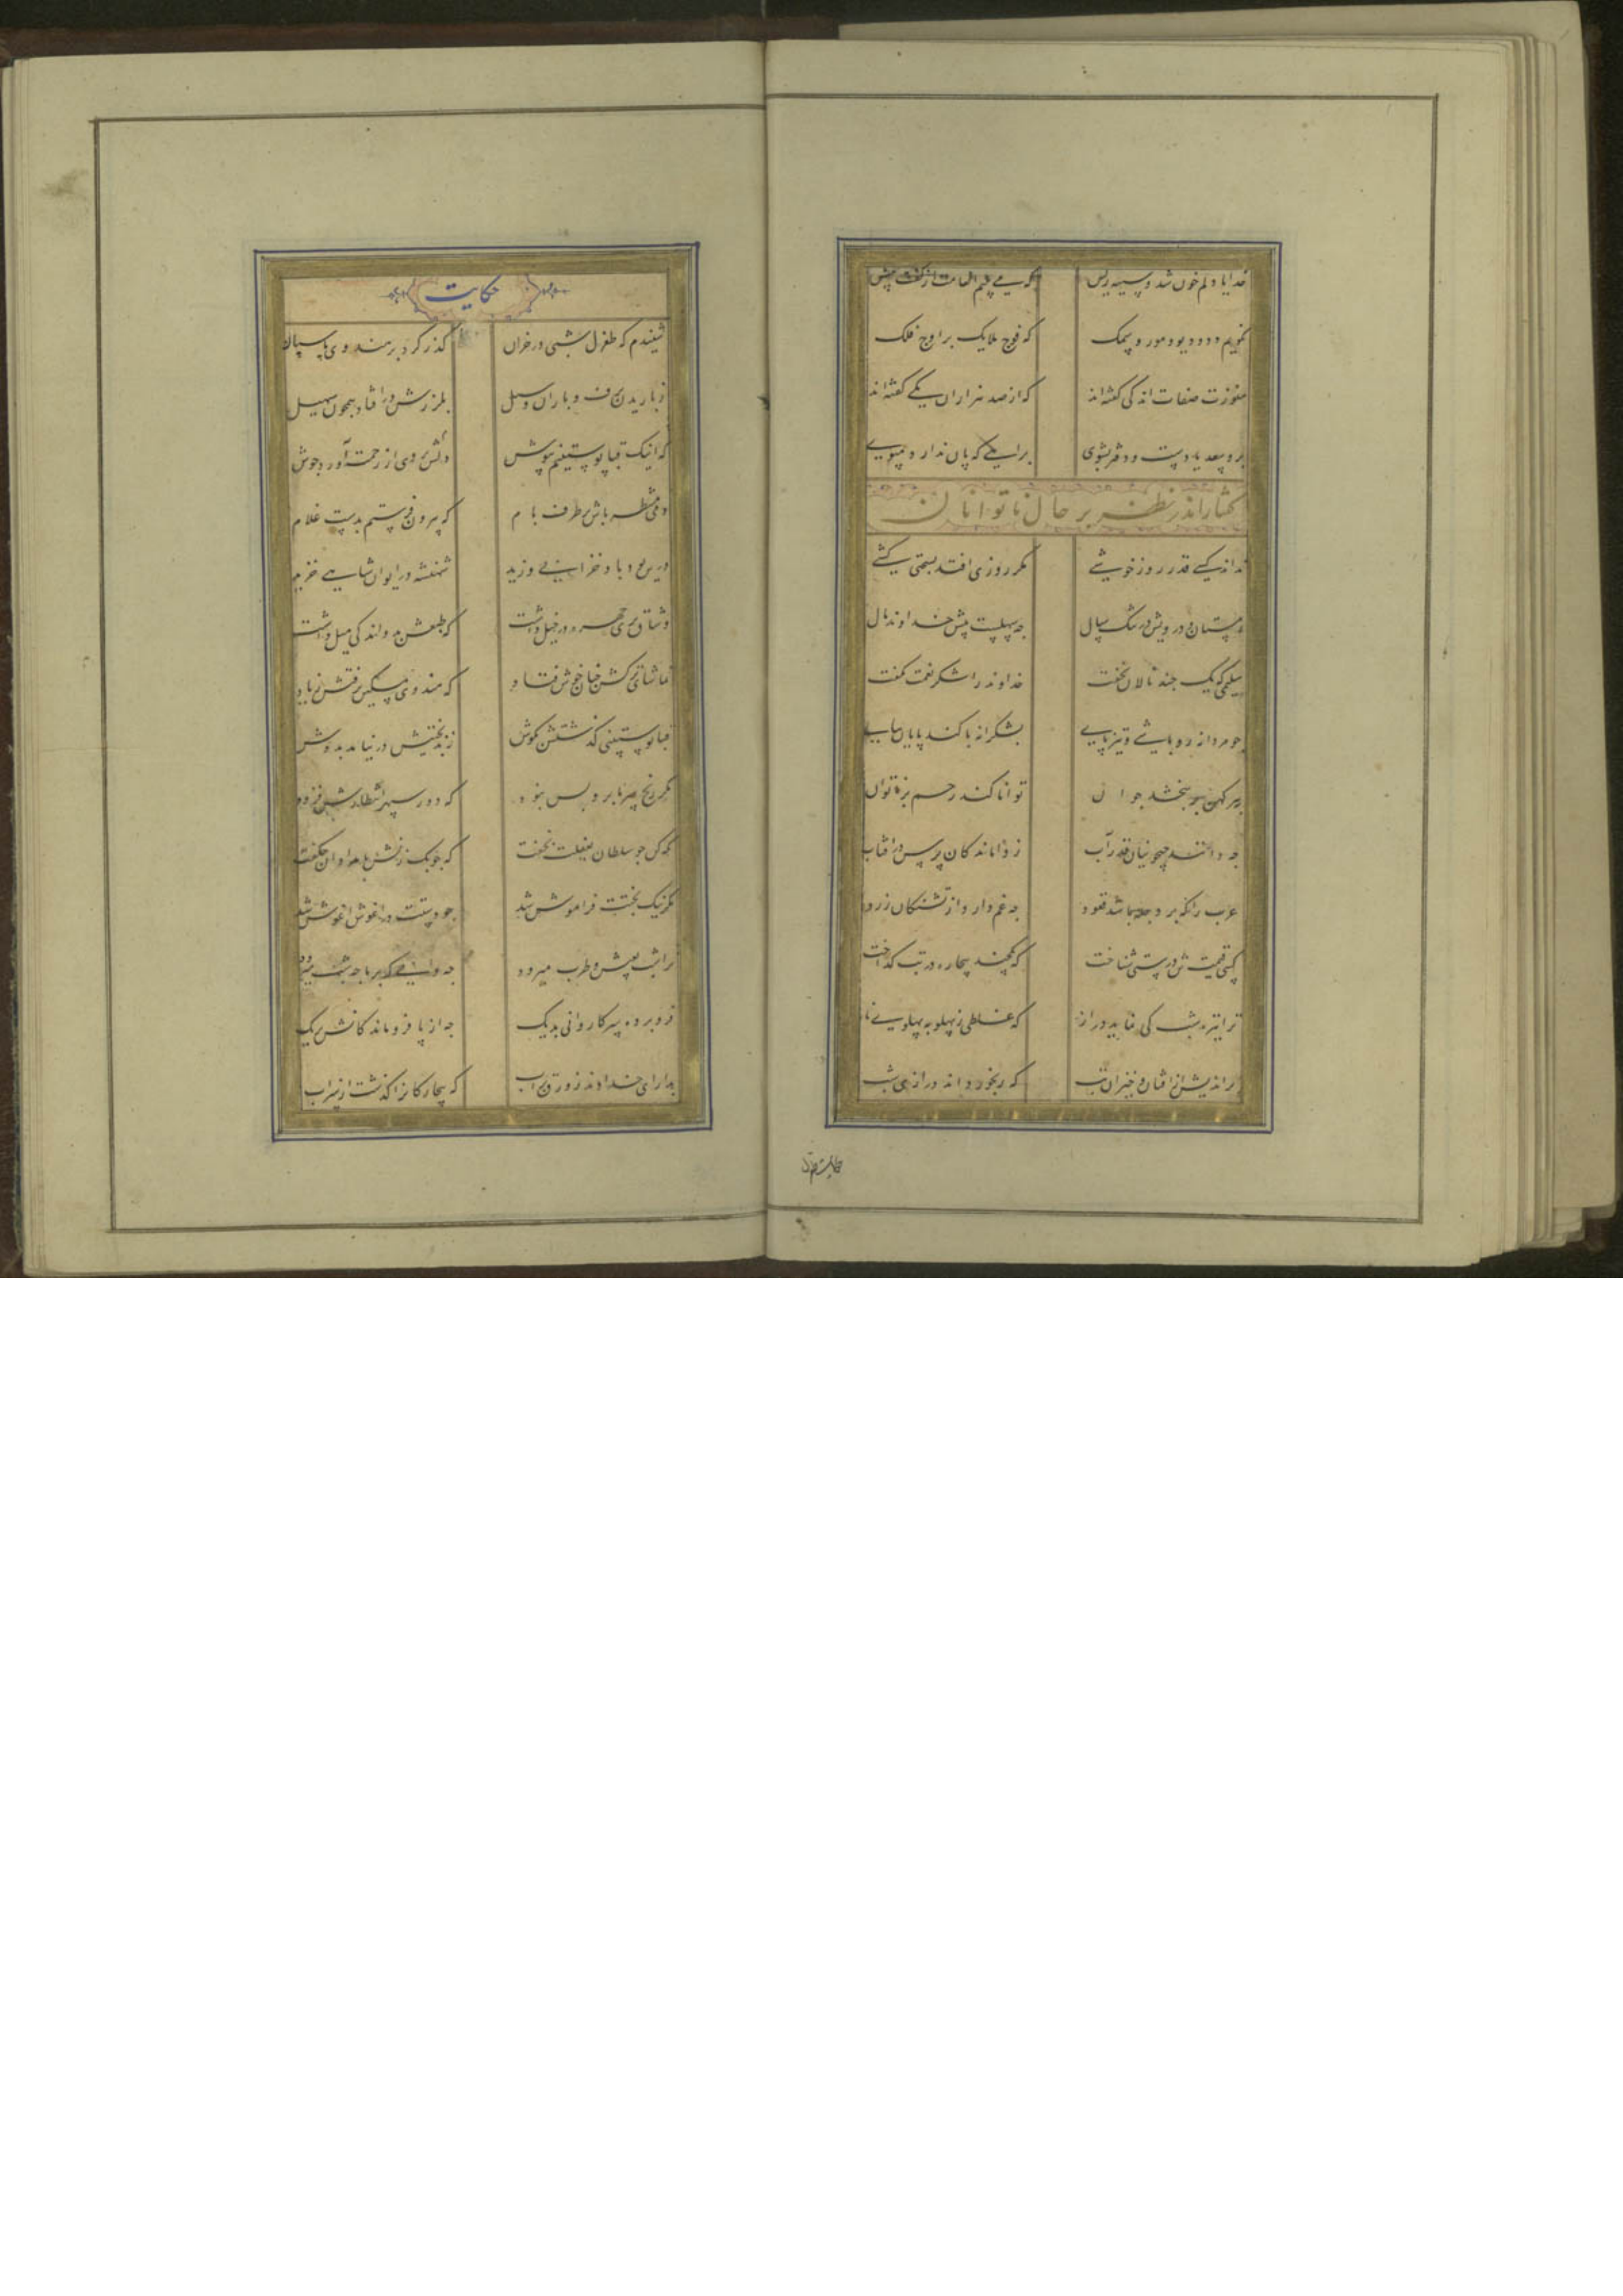 خدایا دلم خون شد و سینه ریش که می‌بینم انعامت از گفت بیش
نگویم دد و دیو و مور و سمک که فوج ملایک بر اوج فلک
هنوزت صفات اندکی گفته‌اند که از صد هزاران یکی گفته‌اند
برو سعدیا دست و دفتر بشوی براهی که پایان ندارد مپوی
گفتار اندر نظر بر حال ناتوانان
نداند کسی قدر روز خوشی مگر روزی افتد بسختی کشی
زمستان درویش در تنگ سال چه سهلست پیش خداوند مال
سلیمی که یک چند نالان نخفت خداوند را شکر نعمت نگفت
چو مردانه رو باشی و تیز پای بشکرانه با کند پایان بپای
به پیر کهن بر ببخشد جوان توانا کند رحم بر ناتوان
چه دانند جیحونیان قدر آب ز واماندگان پرس در آفتاب
عرب را که بر دجله باشد قعود چه غم دارد از تشنگان زرود
کسی قیمت تندرستی شناخت که یکچند بیچاره در تب گداخت
ترا تیره شب کی نماید دراز که غلطی ز پهلو به پهلوی ناز
براندیش از افتان و خیزان تب که رنجور داند درازی شب
حکایت طغرل
حکایت
شنیدم که طغرل شبی در خزان گذر کرد بر هندوی پاسبان
ز باریدن برف و باران و سیل بلرزش در افتاد همچون سهیل
دلش بر وی از رحمت آورد جوش که اینک قبا پوستینم بپوش
دمی منتظر باش بر طرف بام که بیرون فرستم بدست غلام
درین بود و باد خزانی وزید شهنشه در ایوان شاهی خزید
وشاقی پری چهره در خیل داشت که طبعش بدو اندکی میل داشت
تماشای ترکش چنان خوش فتاد که هندوی مسکین برفتش ز یاد
قبا پوستینی گذشتش بگوش ز بدبختیش در نیامد بدوش
مگر رنج سرما برو بس نبود که دور سپهر انتظارش فزود
نگه کن چو سلطان بغفلت بخفت که چوبک زنش بامدادان چگفت
مگر نیک بختت فراموش شد چو دستت در آغوش آغوش شد
ترا شب بعیش و طرب میرود چه دانی که بر ما چه شب میرود
فرو برده سر کاروانی بدیگ چه از پا فرو ماندگانش بریگ
بدار ای خداوند زورق بر آب که بیچارگانرا گذشت از سر آب